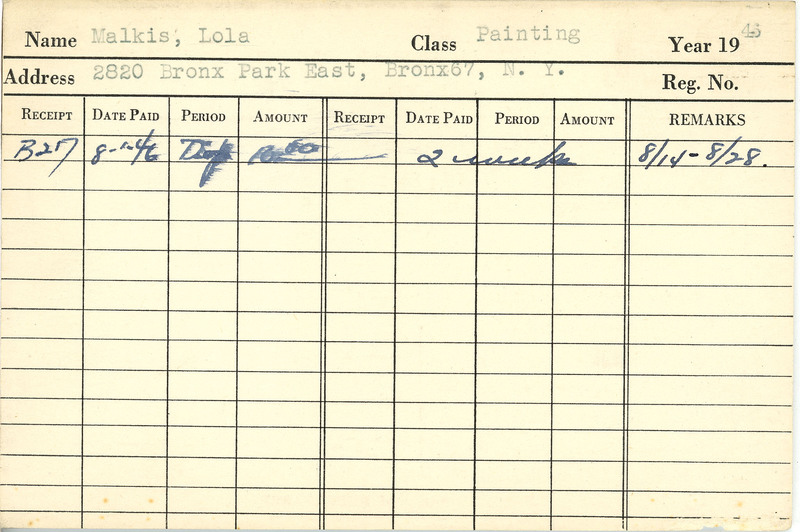 Name Malkis, Lola Class Painting Year 19 46
Address 2820 Bronx Park East, Bronx67, N. Y. Reg. No.
RECEIPT DATE PAID PERIOD AMOUNT RECEIPT DATE PAID PERIOD AMOUNT REMARKS
B27 8-1-46 2 weeks 8/14-8/28.